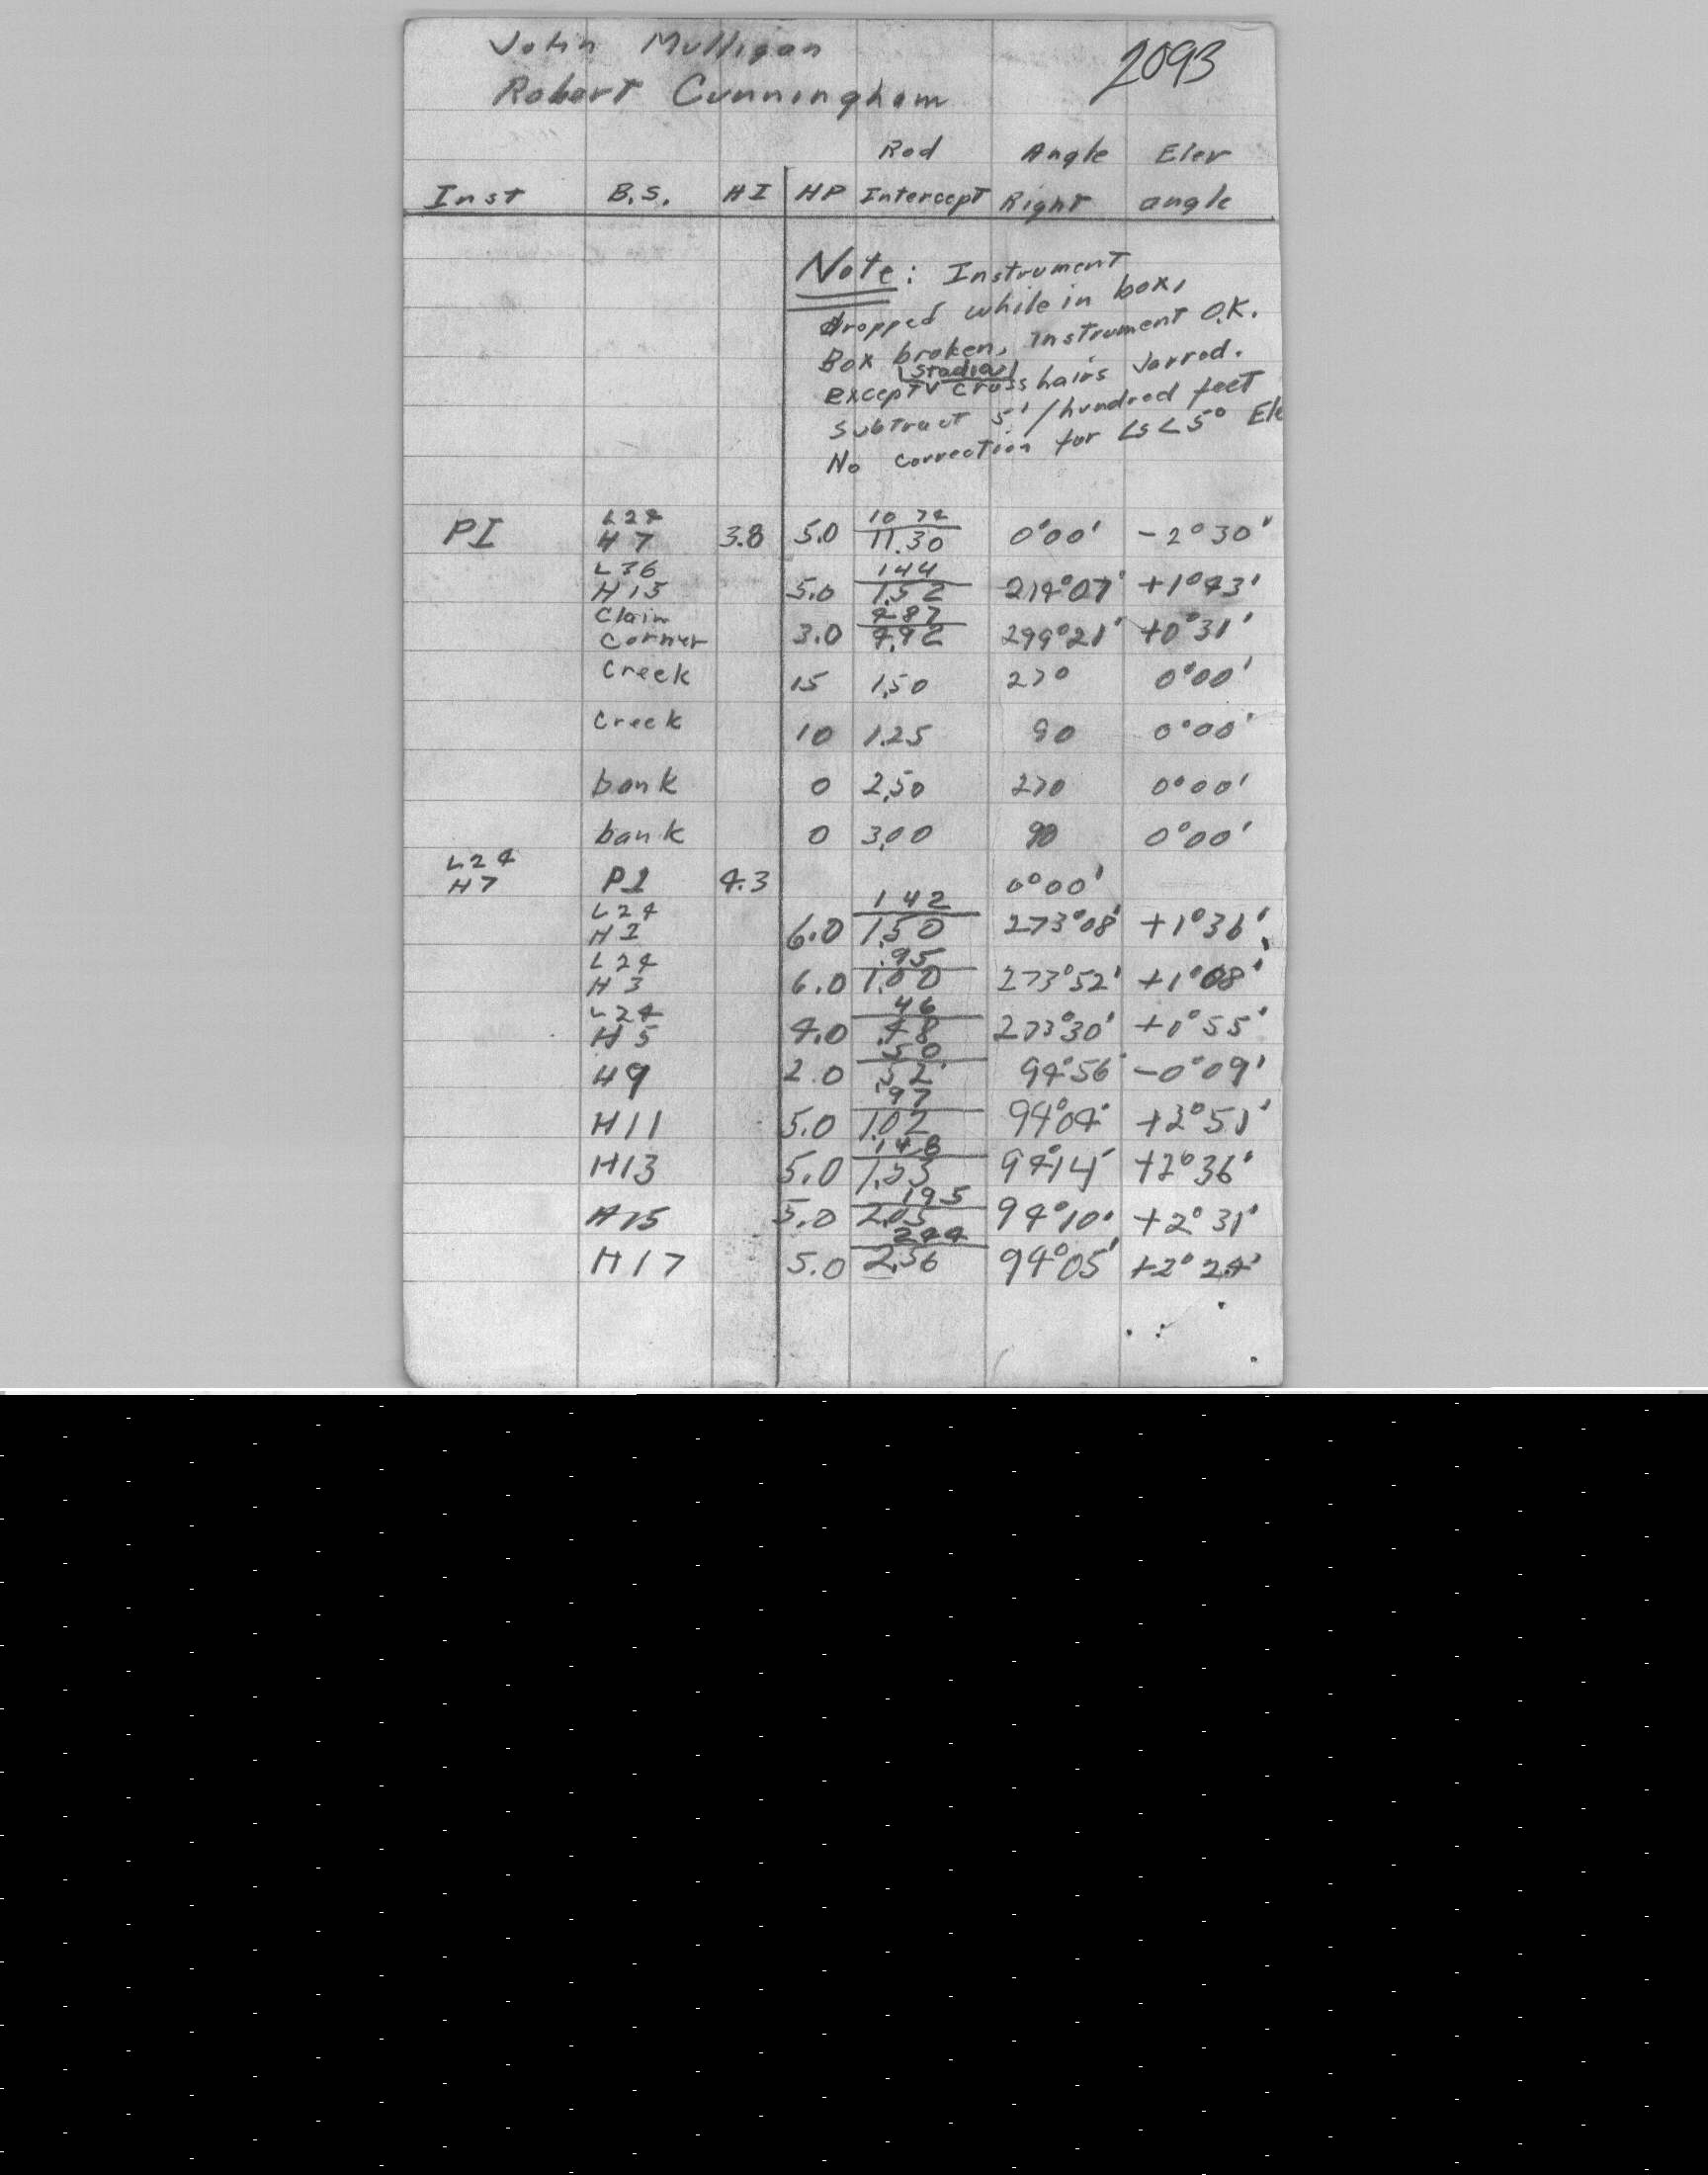 John Mulligan 2093
Robert Cunningham
Rod Angle Elev
Inst B.S. HI HP Intercept Right angle
Note: Instrument
dropped while in box,
Box broken, instrument O.K.
stadia
except cross hairs Jarred.
subtract 5'/hundred feet
No correction for ∠s < 5° Ele
L24 10 74
PI H7 3.8 5.0 11.30 0°00' -2°30'
L36 144
H15 5.0 1.52 214°07' +1°43'
Claim 4 87
Corner 3.0 4.92 299°21' +0°31'
Creek 15 1.50 270 0°00'
Creek 10 1.25 90 0°00'
bank 0 2.50 270 0°00'
bank 0 3.00 90 0°00'
L24
H7 PI 4.3 0°00'
L24 1 42
H1 6.0 1.50 273°08' +1°36'
L24 .95
H3 6.0 1.00 273°52' +1°08'
L24 46
H5 4.0 .48 273°30' +0°55'
50
H9 2.0 .52 94°56' -0°09'
97
H11 5.0 1.02 94°04' +3°51'
148
H13 5.0 1.55 94°14' +2°36'
195
H15 5.0 2.05 94°10' +2°31'
244
H17 5.0 2.56 94°05' +2°24'